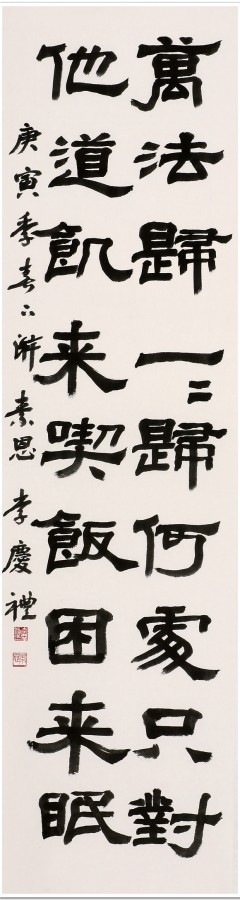 萬法歸一〻歸何處只對
他道飢来喫飯困来眠
庚寅季春下澣素恩李慶禮